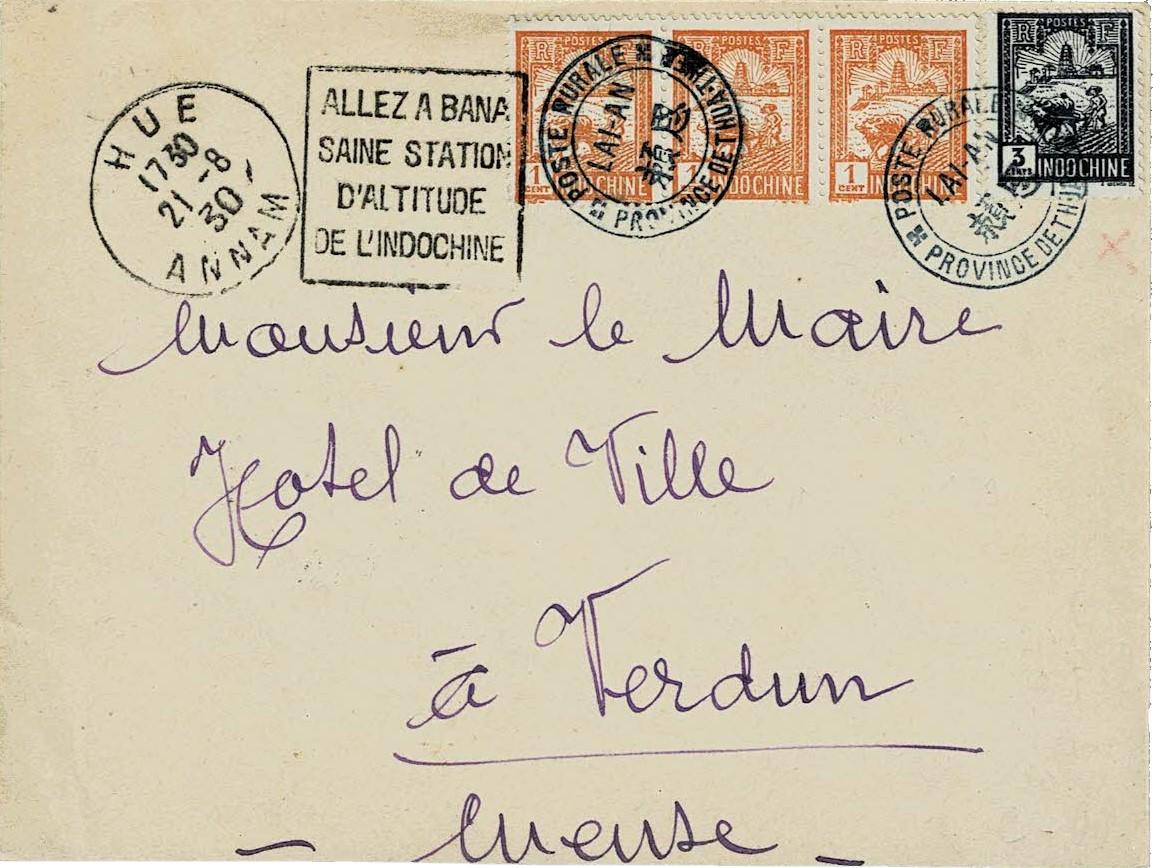 HUE
17 30
21 -8
30 -
ANNAM
ALLEZ A BANA
SAINE STATION
D'ALTITUDE
DE L'INDOCHINE
POSTES
R F
1 CENT
INDOCHINE
POSTES
R F
1
INDOCHINE
POSTES
R F
1 CENT
INDOCHINE
POSTES
R F
3 CENTS
INDOCHINE
POSTE RURALE
LAI-AN
PROVINCE DE THUA-THIEN
POSTE RURALE
LAI-AN
PROVINCE DE THU
Monsieur le Maire
Hotel de Ville
à Verdun
- Meuse -